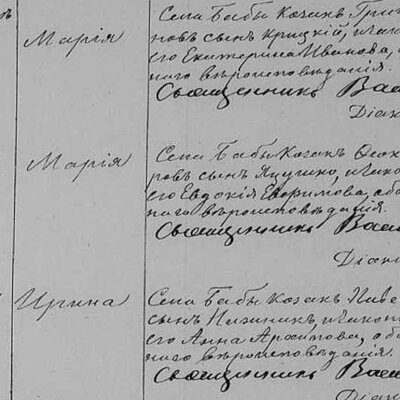 Марія
Села Бабы Козакъ Григ
повъ сынъ Крицкій, и закон
его Екатерина Иванова, о
наго вѣроисповѣданія.
Священникъ Васи
Діак
Марія
Села Бабы Козакъ Осох
ровъ сынъ Яцушко, и закон
его Евдокія Евфимова, оба
наго вѣроисповѣданія.
Священникъ Васи
Діак
Ирина
Села Бабы Козакъ
сынъ и закон
его Анна о
наго вѣроисповѣданія.
Священникъ Васи
Діак